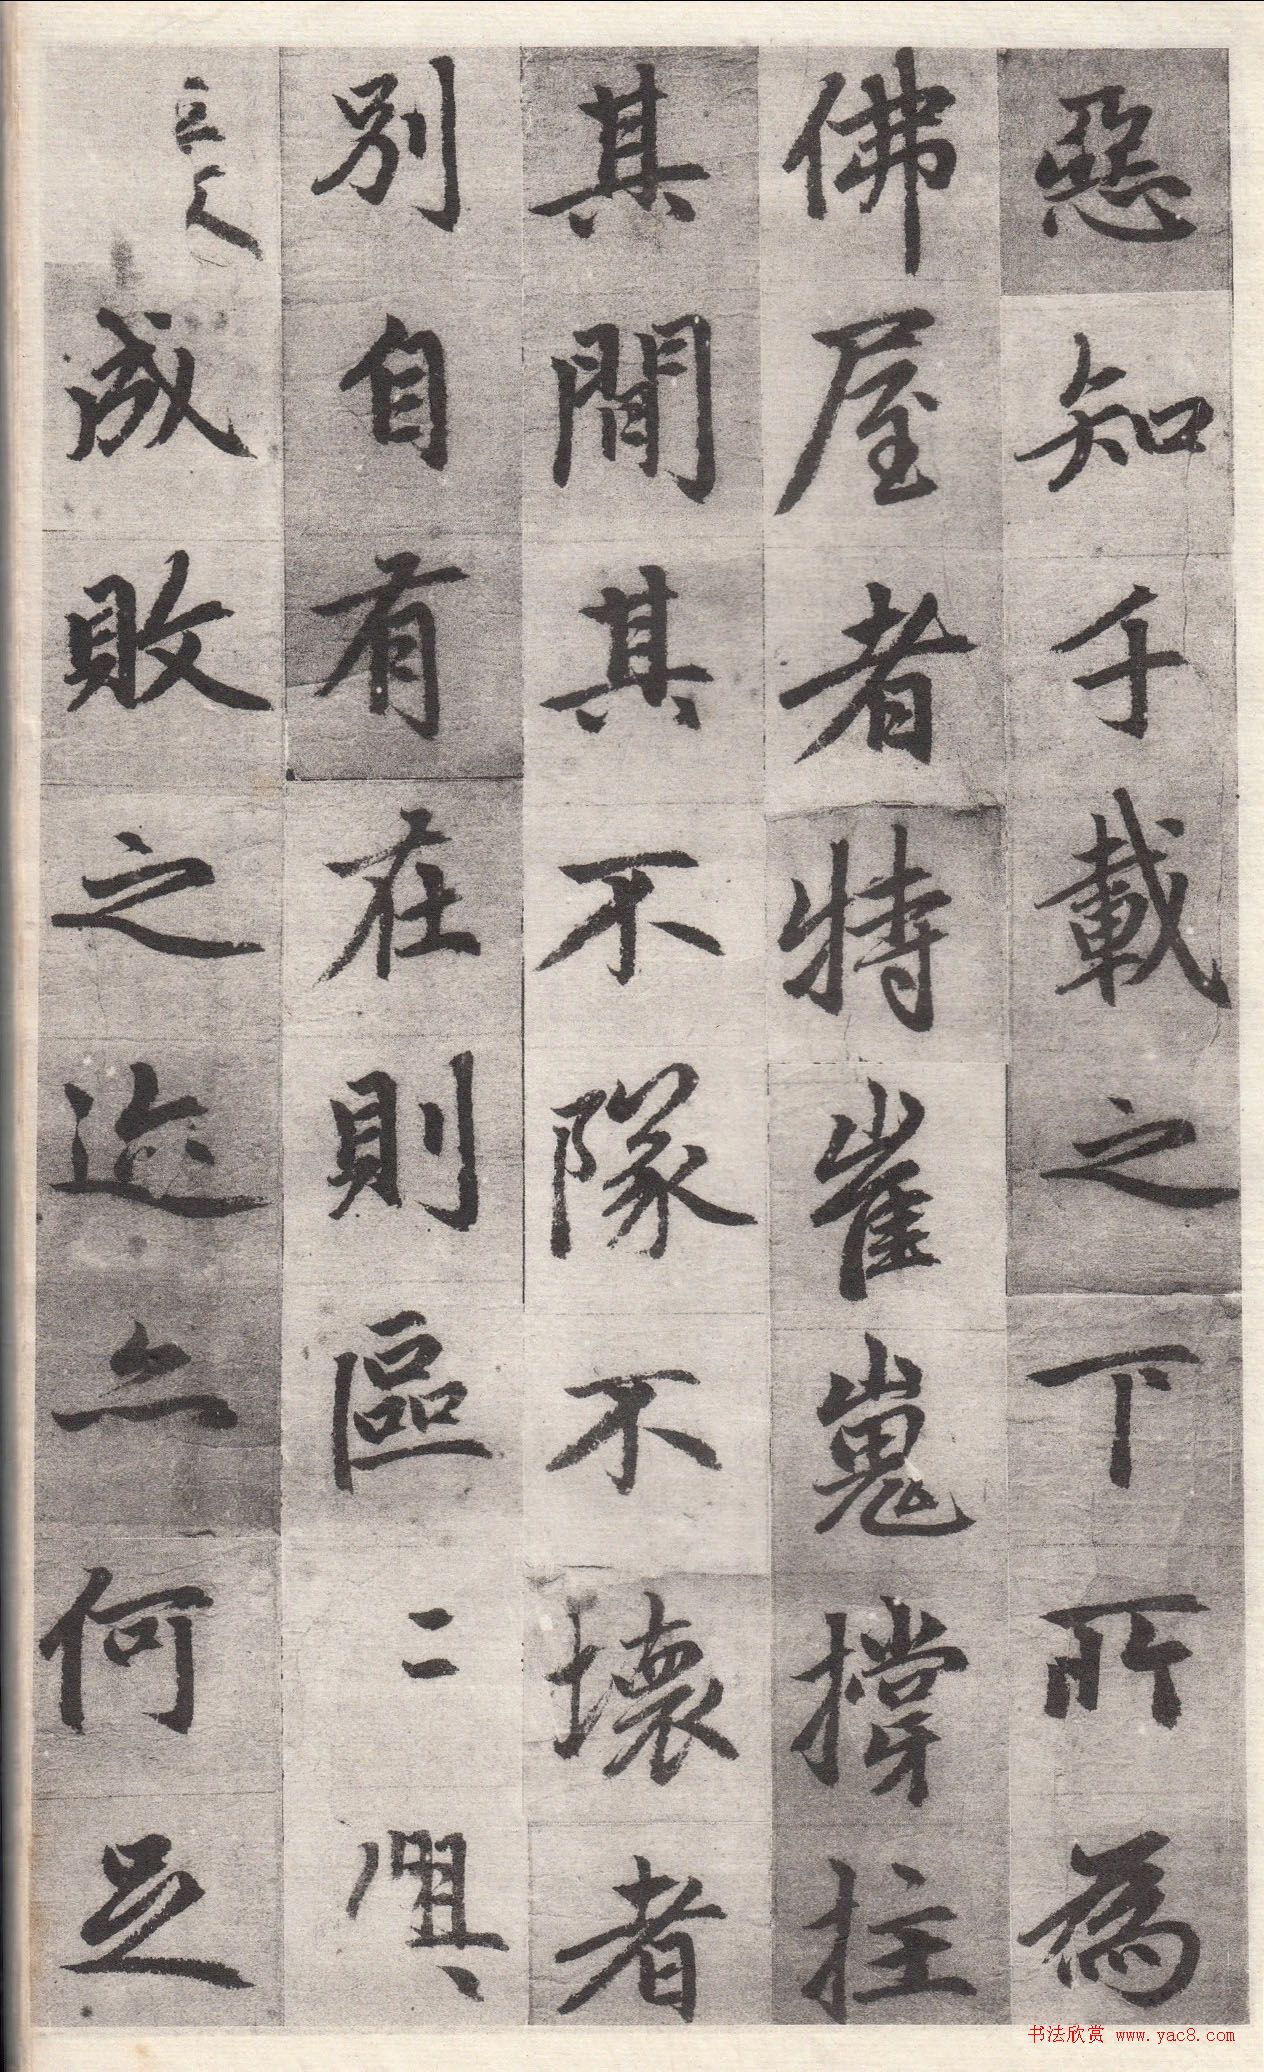 惡知千載之下所為
佛屋者特崔嵬撐拄
其間其不隊不壞者
別自有在則區二興
成敗之迹亦何足
书法欣赏 www.yac8.com